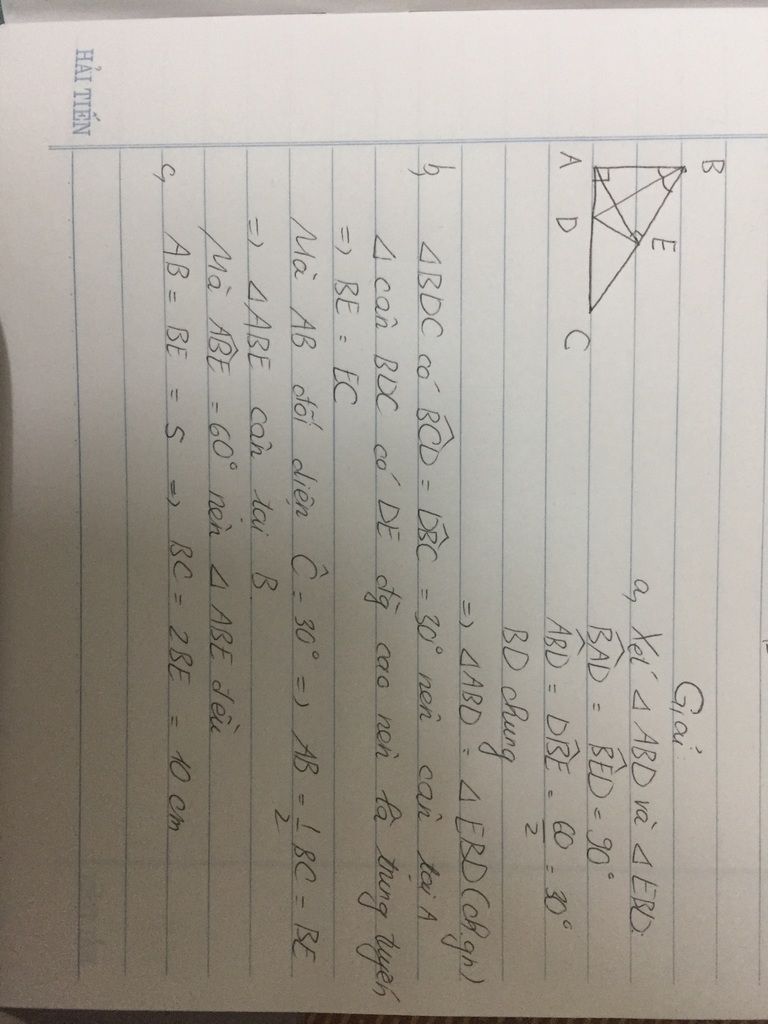 HẢI TIẾN
Giải:
B
E
A
D
C
a, Xét △ ABD và △ EBD:
BAD̂ = BED̂ = 90°
ABD̂ = DBÊ = 60/2 = 30°
BD chung
=> △ ABD = △ EBD (ch.gn)
b, △BDC có BCD̂ = DBĈ = 30° nên cân tại A
△ cân BDC có DE đg cao nên là trung tuyến
=> BE = EC
Mà AB đối diện Ĉ = 30° => AB = 1/2 BC = BE
=> △ABE cân tại B
Mà ABÊ = 60° nên △ ABE đều
c, AB = BE = 5 => BC = 2BE = 10 cm